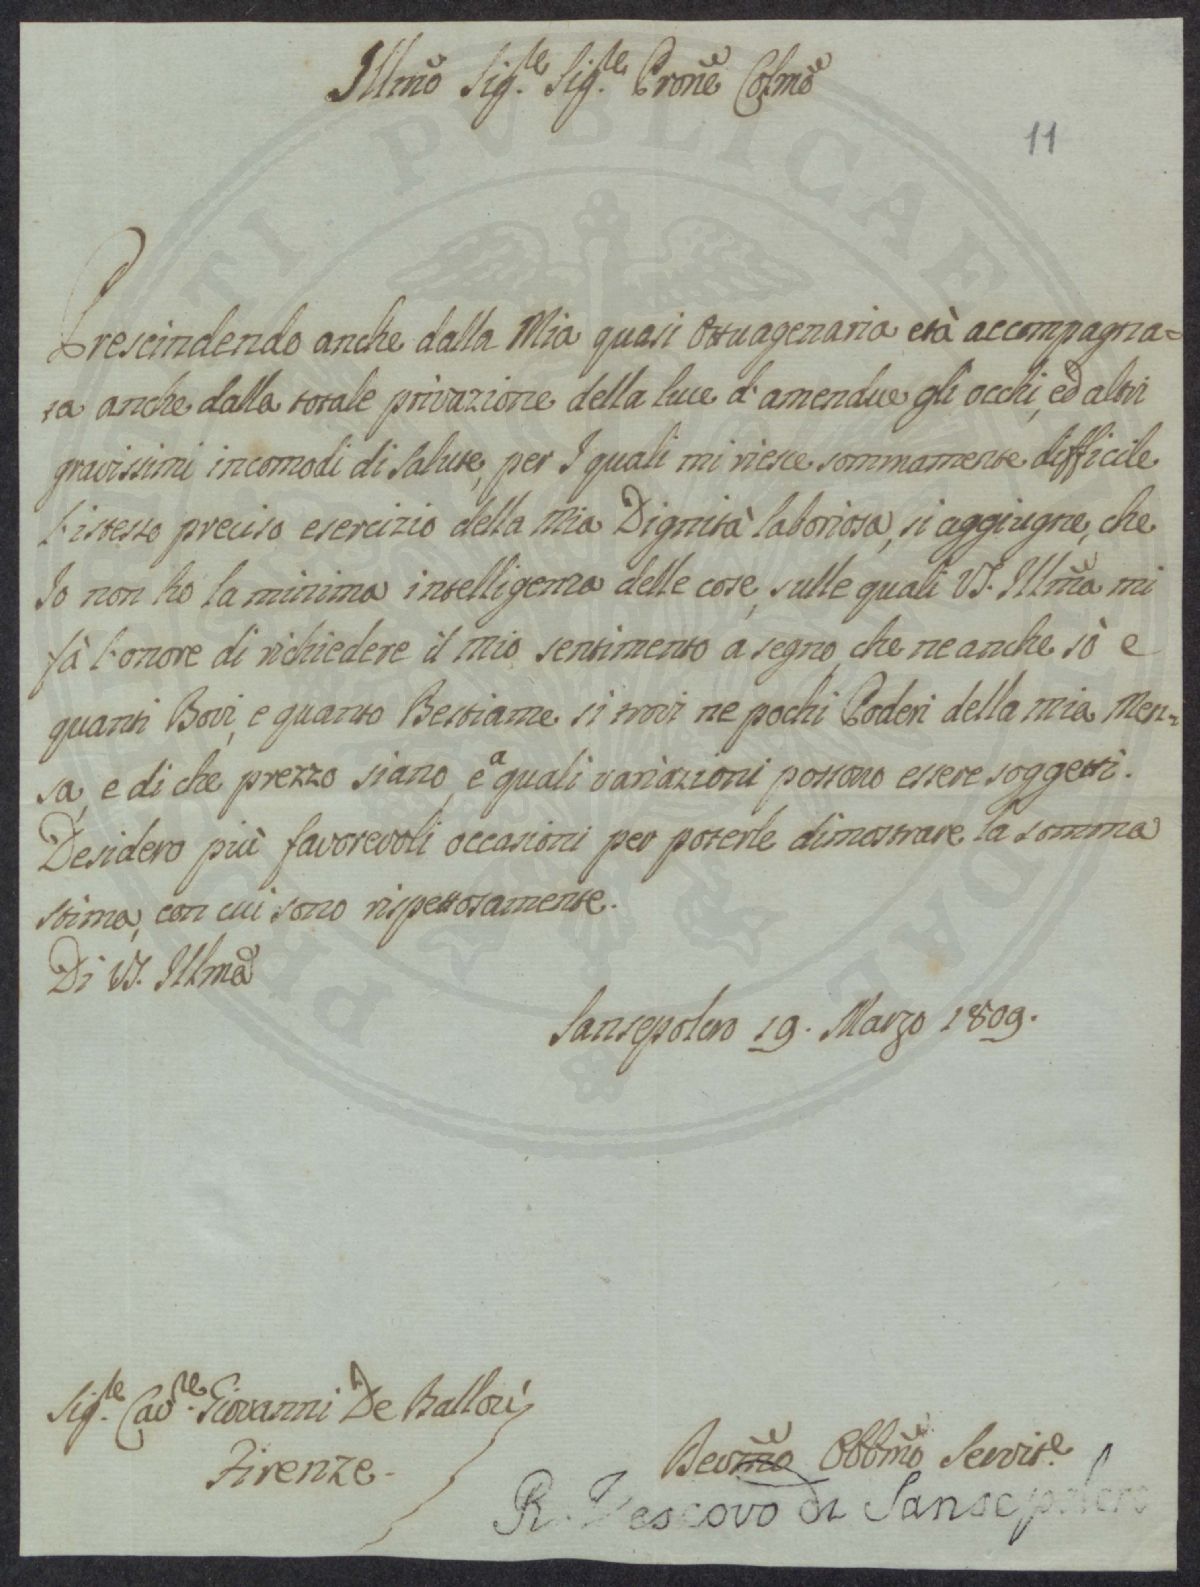 Illmõ Sig.re Sig.re Pronẽ Colmõ
11
Prescindendo anche dalla Mia quasi Ottuagenaria età accompagna=
ta anche dalla totale privazione della luce d'amendue gli occhi, ed altri
gravissimi incomodi di Salute, per I quali mi riesce sommamente difficile
l'istesso preciso esercizio della Mia Dignità laboriosa, si aggiugne, che
Io non ho la minima intelligenza delle cose, sulle quali VS. Illmã mi
fà l'onore di richiedere il Mio sentimento a segno, che ne anche sò e
quanti Bovi, e quanto Bestiame si trovi ne pochi Poderi della mia Men=
sa, e di che prezzo siano, e a quali variazioni possono essere soggetti.
Desidero più favorevoli occasioni per poterle dimostrare la somma
stima, con cui sono rispettosamente.
Di VS. Illmã
Sansepolcro 19. Marzo 1809.
Sig.re Cav.re Giovanni De Baillou
Firenze.
Devmõ Obbmõ Servit.e
R. Vescovo di Sansepolcro